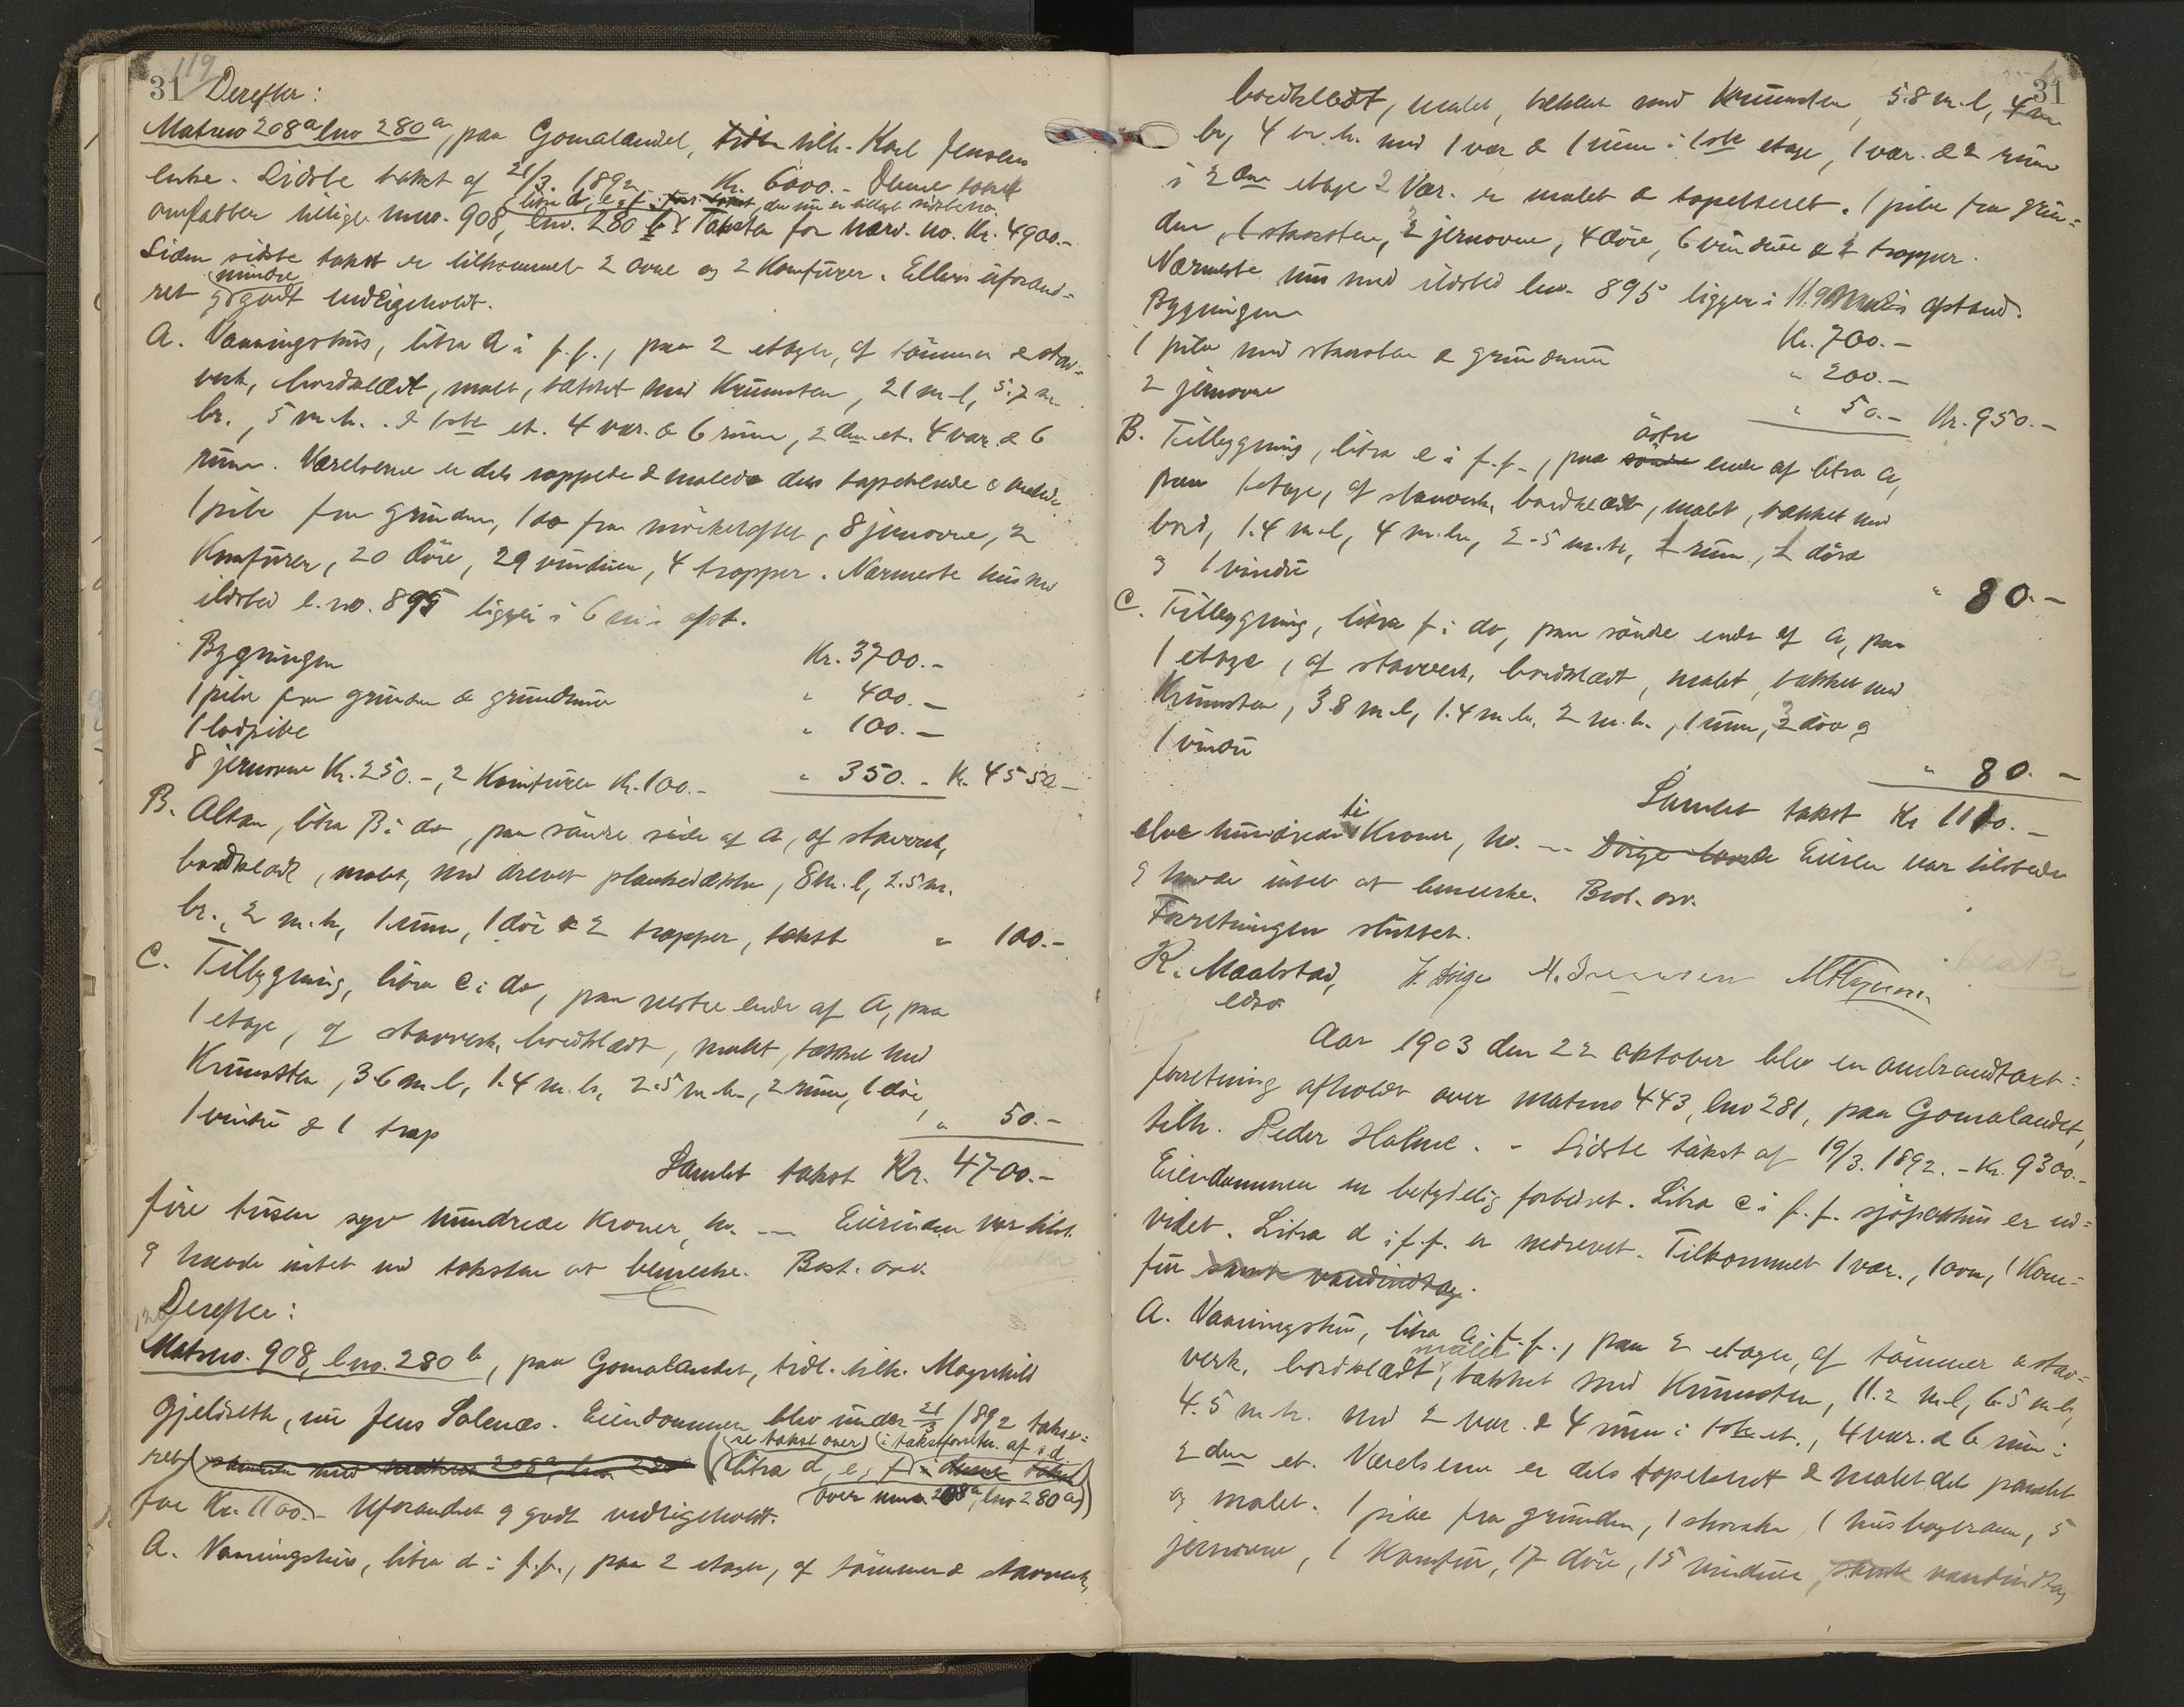 119
31 Derefter:
Matrno 208a lno 280a, paa Gomalandet, tilh. Karl Jensens
enke. Sidste takst af 21/3. 1892 Kr. 6000.- Denne takst
litra d, e, f. for takst, der nu er tillagt sidstn. no.
omfatter tillige mno. 908, lno. 280 b. Taksten for nærv. no. Kr. 4900.-
Siden sidste takst er tilkommet 2 ovne og 2 Komfurer. Ellers uforand=
mindre
ret g godt vedligeholdt.
A. Vaaningshus, litra A i f.f., paa 2 etager, af tømmer & stav=
verk, bordklædt, malt, tækket med Krumsten, 21 m l, 5.7 m.
br., 5 m.h. I 1ste et. 4 vær. & 6 rum, 2den et. 4 vær. & 6
rum. Værelserne er dels rappede & malede dels tapetserede & malede.
1 pibe fra grunden, 1 do fra mørkeloftet, 8 jernovne, 2
Komfurer, 20 døre, 29 vinduer, 4 trapper. Nærmeste hus med
ildsted l.no. 895 ligger i 6 m's afst.
Bygningen Kr. 3700.-
1 pibe fra grunden & grundmur " 400.-
1 lodpibe " 100.-
8 jernovne Kr. 250.-, 2 Komfurer Kr. 100.- " 350.- Kr. 4550.-
B. Altan, litra B i do, paa søndre side af A, af stavverk,
bordklædt, malt, med drevet plankedække, 8 m. l, 2.5 m.
br., 2 m.h, 1 rum, 1 dør & 2 trapper, takst " 100.-
C. Tilbygning, litra C i do, paa vestre ende af A, paa
1 etage, af stavverk, bordklædt, malt, tækket med
Krumsten, 3.6 m l, 1.4 m. br, 2.5 m h., 2 rum, 1 dør,
1 vindu & 1 trap " 50.-
Samlet takst Kr. 4700.-
fire tusen syv hundrede Kroner, hv. — Eierinden var tilst.
g havde intet ved taksten at bemerke. Best. ov.
120
Derefter:
Matrno. 908, lno. 280 b, paa Gomalandet, tidl. tilh. Magnhild
Gjeldseth, nu Jens Solenæs. Eiendommen blev under 21/3 1892 takse=
(se takst over) (i takstforretn. af s.d.
ret sammen med matrno 208a, lno 280a (litra d, e, f) i denne takst
over mno 208a, lno 280a)
for Kr. 1100.- Uforandret g godt vedligeholdt.
A. Vaaningshus, litra d i f.f., paa 2 etager, af tømmer & stavverk,
31
bordklædt, malet, tækket med Krumsten, 5.8 m. l, 4 m
br, 4 m. h. med 1 vær & 1 rum i 1ste etage, 1 vær. & 2 rum
i 2den etage 2 Vær. er malet & tapetseret. 1 pibe fra grun=
den, 1 skorsten, 2 jernovne, 4 døre, 6 vinduer & 2 trapper.
Nærmeste hus med ildsted lno. 895 ligger i 11.9 m's afstand.
Bygningen Kr. 700.-
1 pibe med skorsten & grundmur " 200.-
2 jernovne " 50.- Kr. 950.-
østre
B. Tilbygning, litra e i f.f., paa søndre ende af litra A,
paa 1 etage, af stavverk, bordklædt, malt, tækket med
bord, 1.4 m l, 4 m. br, 2.5 m. h, 1 rum, 1 døre
g 1 vindu " 80.-
C. Tilbygning, litra f i do, paa søndre ende af A, paa
1 etage, af stavverk, bordklædt, malet, tækket med
Krumsten, 3.8 m. l, 1.4 m. br, 2 m. h., 1 rum, 2 døre g
1 vindu " 80.-
Samlet takst Kr 1110.-
ti
elve hundrede Kroner, hv. — Dørge havde Eieren var tilstede
g havde intet at bemerke. Besl. ov.
Forretningen sluttet.
K. Maalstad, K Dørge
edsv
Aar 1903 den 22 oktober blev en ombrandtakst=
forretning afholdt over matrno 443, lno 281, paa Gomalandet,
tilh. Peder Holme. - Sidste takst af 19/3. 1892. - Kr. 9300.-
Eiendommen er betydelig forbedret. Litra C i f.f. sjøpakhus er ud=
videt. Litra d i f.f. er nedrevet. Tilkommet 1 vær., 1 ovn, 1 Kom=
fur samt vandindtag.
A. Vaaningshus, litra A i f.f., paa 2 etager, af tømmer & stav=
malet
verk, bordklædt, tækket med Krumsten, 11.2 m l, 6.5 m br,
4.5 m h. med 2 vær. & 4 rum i 1ste et., 4 vær. & 6 rum i
2den et. Værelserne er dels tapetseret & malet dels panelet
og malet. 1 pibe fra grunden, 1 skorsten, 1 husbagerovn, 5
jernovne, 1 Komfur, 17 døre, 15 vinduer, samt vandindtag